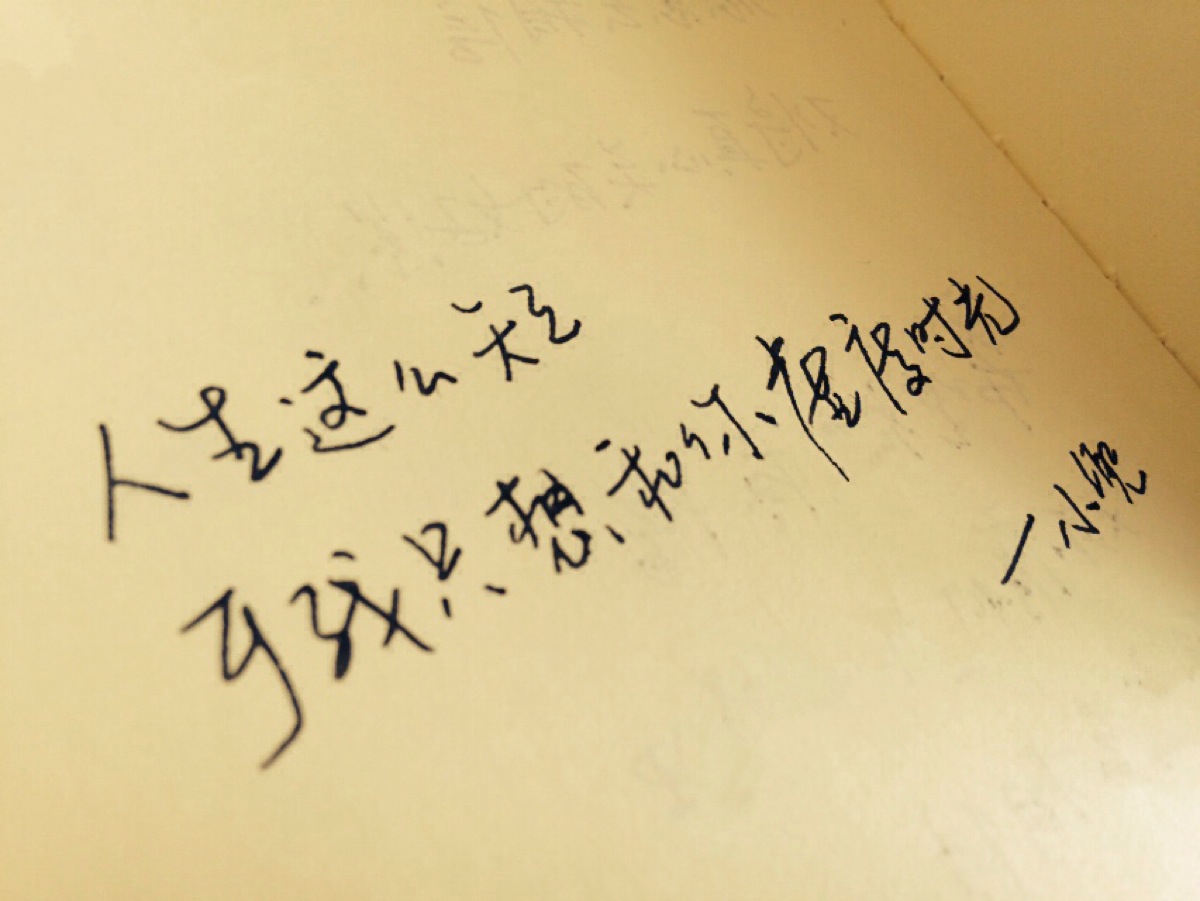 人生这么短
予我只想和你虚度时光
—小